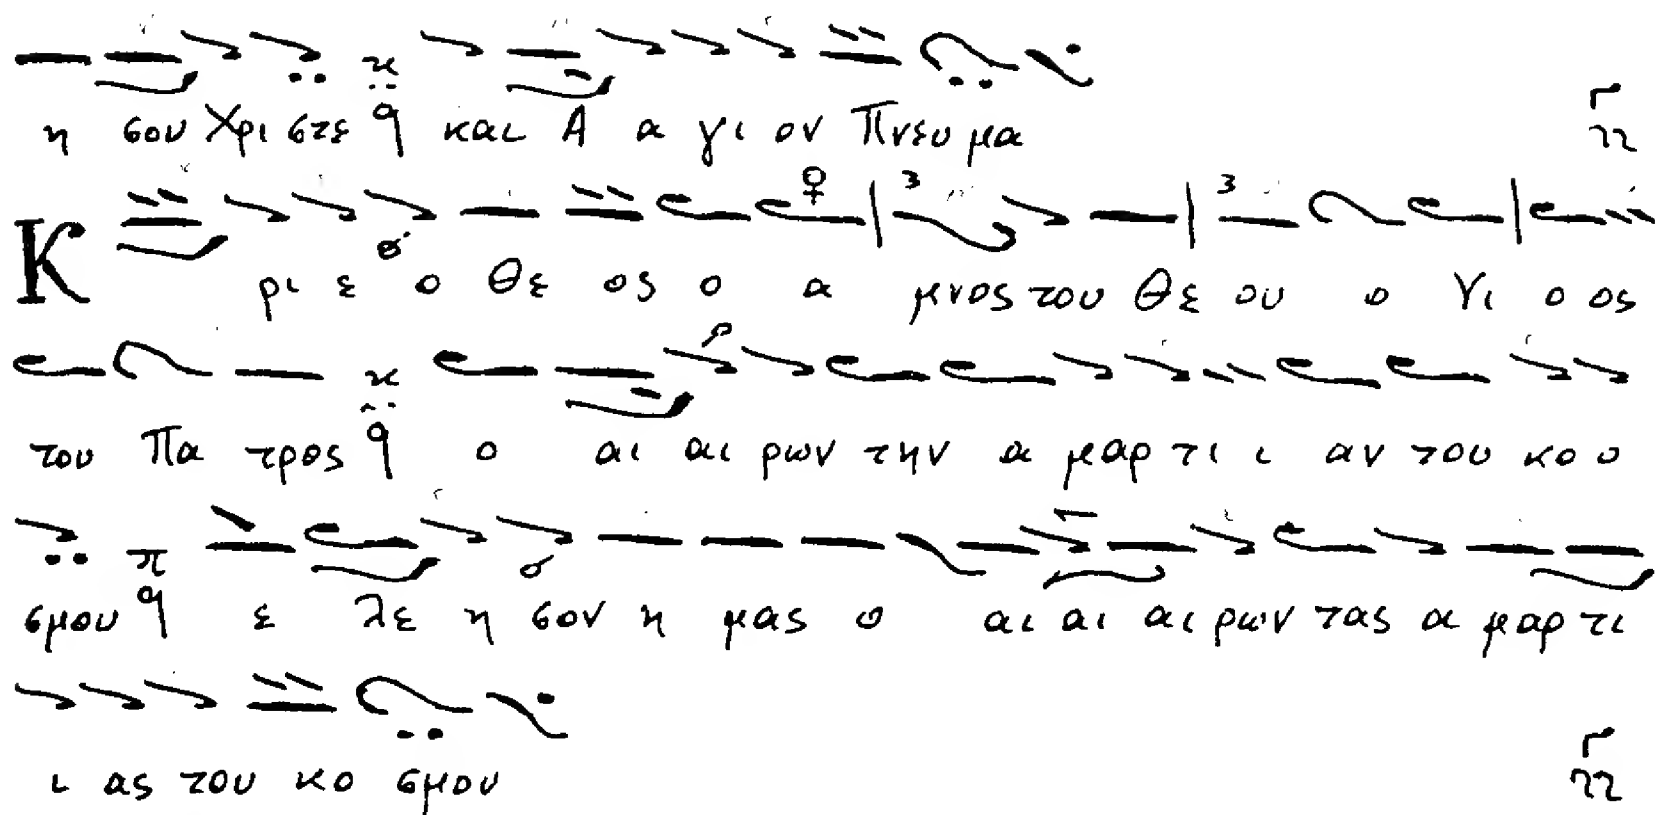 η σου Χρι στε ϥ και Α α γι ον Πνευ μα
Κ ρι ε ο Θε ος ο α μνος του Θε ου ο Υι ο ος
του Πα τρος ϥ ο αι αι ρων την α μαρ τι ι αν του κο ο
σμου ϥ ε λε η σον η μας ο αι αι αι ρων τας α μαρ τι
ι ας του κο σμου